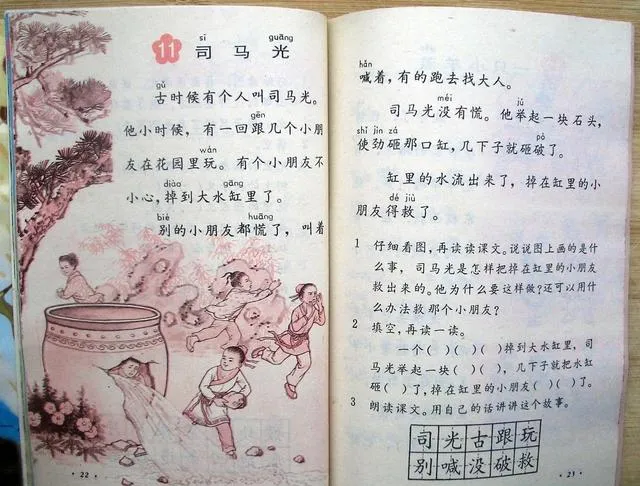 11 司马光
sī guāng
gǔ
古时候有个人叫司马光。
gēn
他小时候，有一回跟几个小朋
wán
友在花园里玩。有个小朋友不
diào gāng
小心，掉到大水缸里了。
bié huāng
别的小朋友都慌了，叫着
22
hǎn
喊着，有的跑去找大人。
méi jǔ
司马光没有慌。他举起一块石头，
shǐ jìn zá pò
使劲砸那口缸，几下子就砸破了。
缸里的水流出来了，掉在缸里的小
dé jiù
朋友得救了。
1 仔细看图，再读读课文。说说图上画的是什
么事，司马光是怎样把掉在缸里的小朋友
救出来的。他为什么要这样做？还可以用什
么办法救那个小朋友？
2 填空，再读一读。
一个( )( )( )掉到大水缸里，司
马光举起一块( )( )，几下子就把水缸
砸( )了，掉在缸里的小朋友( )( )了。
3 朗读课文。用自己的话讲讲这个故事。
司光古跟玩
别喊没破救
23